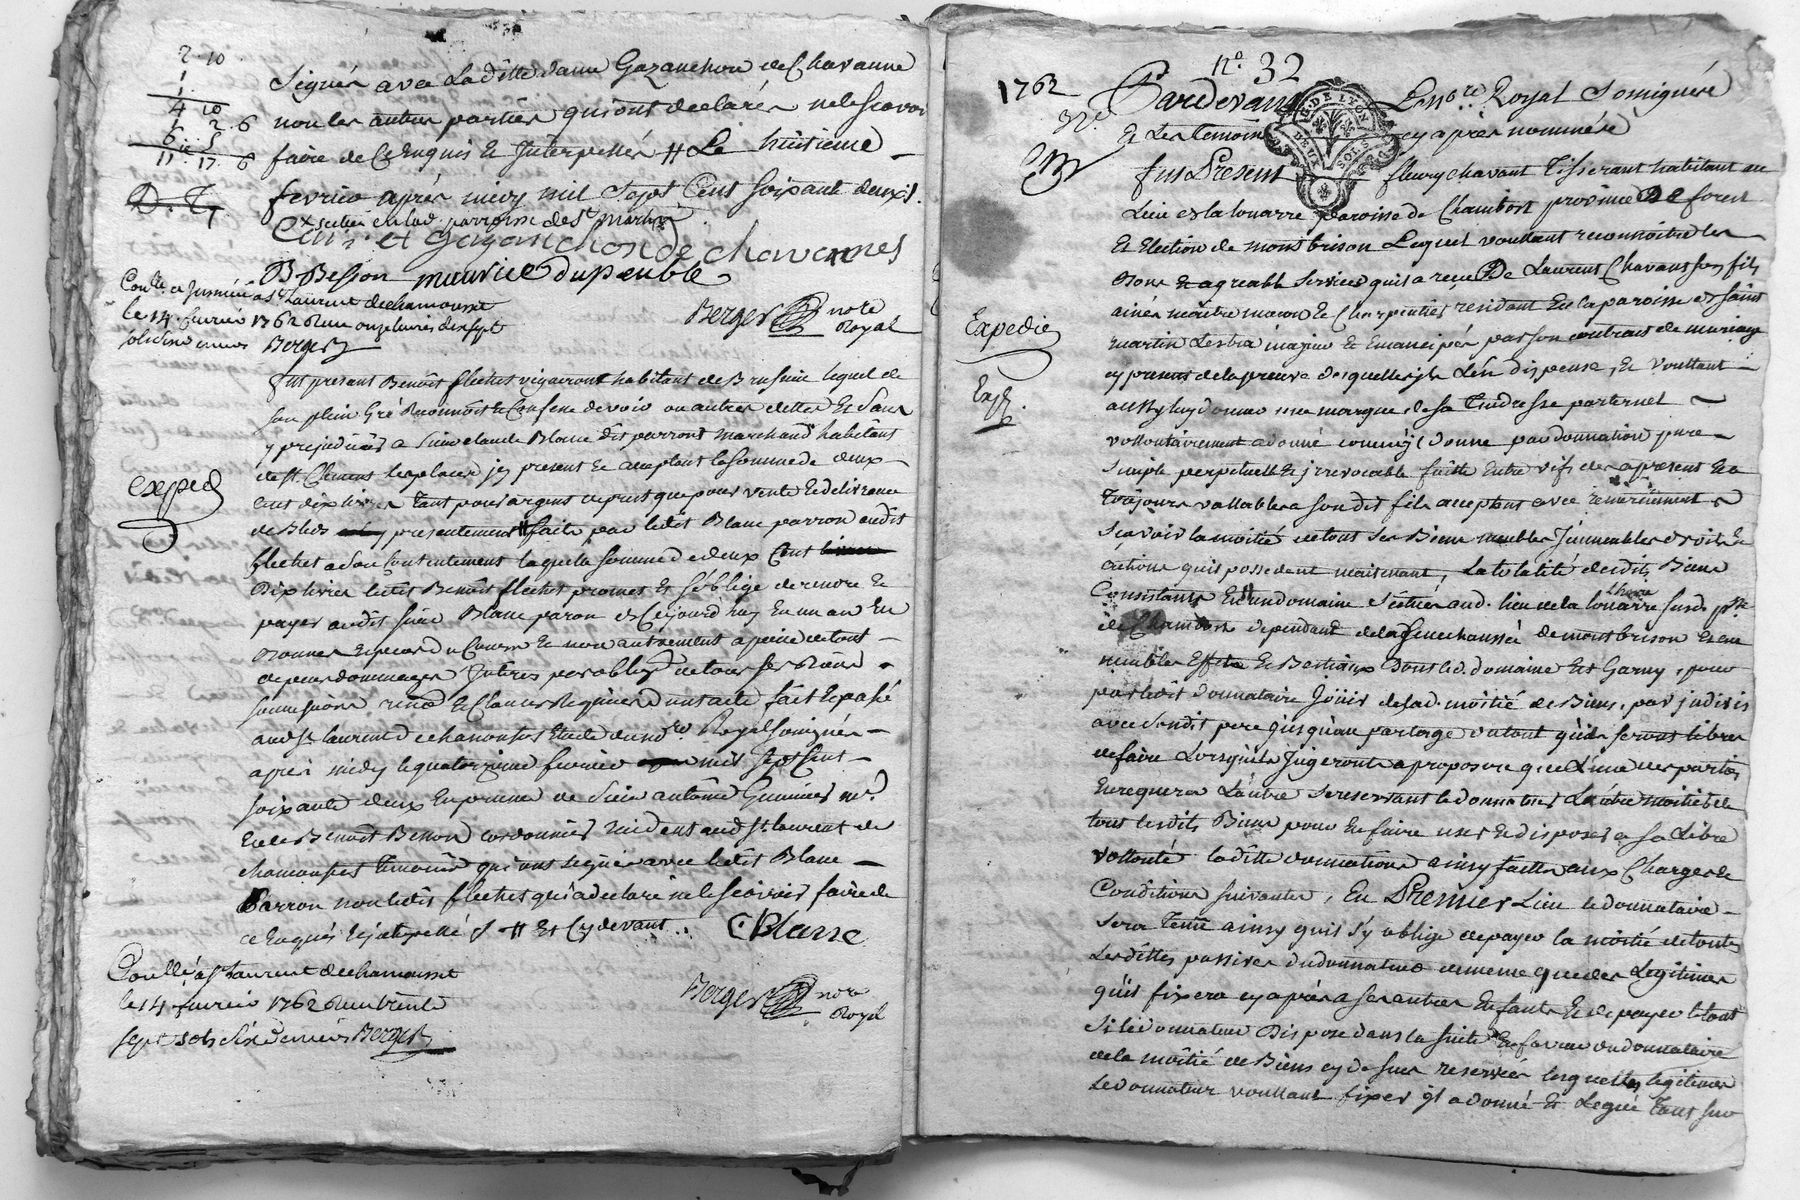 2. 10
1.
4 10
1. 2. 6
6. 5
11. 17. 6
D. T.
Signés avec Laditte dame Gazanchon de Chavanne
non les autres parties qui ont declarés ne le scavoir
faire de Ce Enquis Et Interpellés # Le huitieme
fevrier après midy mil Sept Cent Soixant deux
en lad. parroisse de St. martin
gazanchon de chavannes
B Besson maurice dupeuble
Conllé a St Laurent de chamousset
le 14. fevrier 1762 Recu onze livres dix sept
sols six deniers Berger
Berger note
Royal
exped
Fut present Benoît fleches vigneron habitant de Brussieu lequel de
son plein Gré Reconnoit Et Confesse devoir autres dettes Et Sans
y prejudicier a Sieur claude Blanc dit parron marchand habitant
de St. Clement les places icy present Et acceptant la Somme de deux
Cent dix livres tant pour argent que pour vente Et delivrance
de Bleds presentement # faite par ledit Blanc parron audit
fleches a son Contentement laquelle Somme de deux Cent
Dix livres ledit Benoît fleches promet Et s'oblige de rendre Et
payer audit Sieur Blanc paron de Cejourd'huy En un an En
apeine de tout
depens dommages Interets par obligon de tous ses Biens
Soumissions renon Et Clauses Requises dont acte fait Et passé
aud St. laurent de chamousset Etude du nre Royal Soussigné
après midy le quatorzieme fevrier mil Sept Cent
soixante deux En presence de Sieur antoine
Et de Benoît Besson cordonnier residents aud St. laurent de
chamousset temoins qui ont signés avec ledit Blanc
Parron non ledit fleches qui a declaré ne le scavoir faire de
ce Enquis Et interpellé # Et Cy devant. C Blanc
Conllé a St Laurent de chamousset
le 14. fevrier 1762 Recu trente
sept sols Six Deniers Berger
Berger note
Royal
1762
no. 32
32e
Expedié
Exp.
G. DE LYON
DEUX SOLS
Pardevant Le nore Royal Soussigné
& Les temoins cy après nommés
fut Present fleury chavant Tisserant habitant au
Lieu de la louarre paroisse de Chambost province De forest
Et Election de montbrison Lequel voullant reconnoitre les
Bons Et agreable Services qu'il a receu De Laurent Chavant Son fils
ainé maître macon Et Charpentier residant En la paroisse de Saint
martin Lestra majeur Et Emancipés par son contract de mariage
cy present de la preuve desquelles il La dispense, Et Voullant
aussy luy donner une marque de sa Tendresse parternel
vollontairement a donné comme il Donne par donnation pure
Simple perpetuelle Et jrrevocable faitte Entre vifs des a present Et a
toujours vallable a son dit fils acceptant avec remerciment
Scavoir la moitié de tout Ses Biens meubles Jmmeubles droits Et
actions qu'il possedent maitenant, La totalité desdits Biens
Consistants En un domaine Scitué aud. lieu de la louarre susd. psse
de Chambost dependant de la Senechaussée de montbrison Et en
meubles Effets Et Bestiaux Dont led. domaine Est Garny, pour
par ledit donnataire Joüir de lad. moitié de Biens, par jndivis
avec Sondit pere jusqu'au partage qu'ils seront libres
de faire Lorsqu'ils Jugeront a propos ou que L'une des parties
En requerra L'autre se reservant le donnateur L'autre moitié de
tous lesdits Biens pour En faire user Et disposer a sa Libre
Vollonté laditte donnation ainsy faitte aux Charges Et
Conditions suivantes, En Premier Lieu le donnataire
Sera Tenu ainsy qu'il s'y oblige de payer la moitié de toutes
Les dettes passives du donnateur de meme que des Legitimes
qu'il fixera cy après a ses autres Enfants Et de payer le tout
Si le donnateur Dispose dans la suite En faveur du donnataire
de la moitié de Biens cy dessus reservées lesquelles legitimes
Le donnateur voullant fixer il a donné Et Legué Tant sur